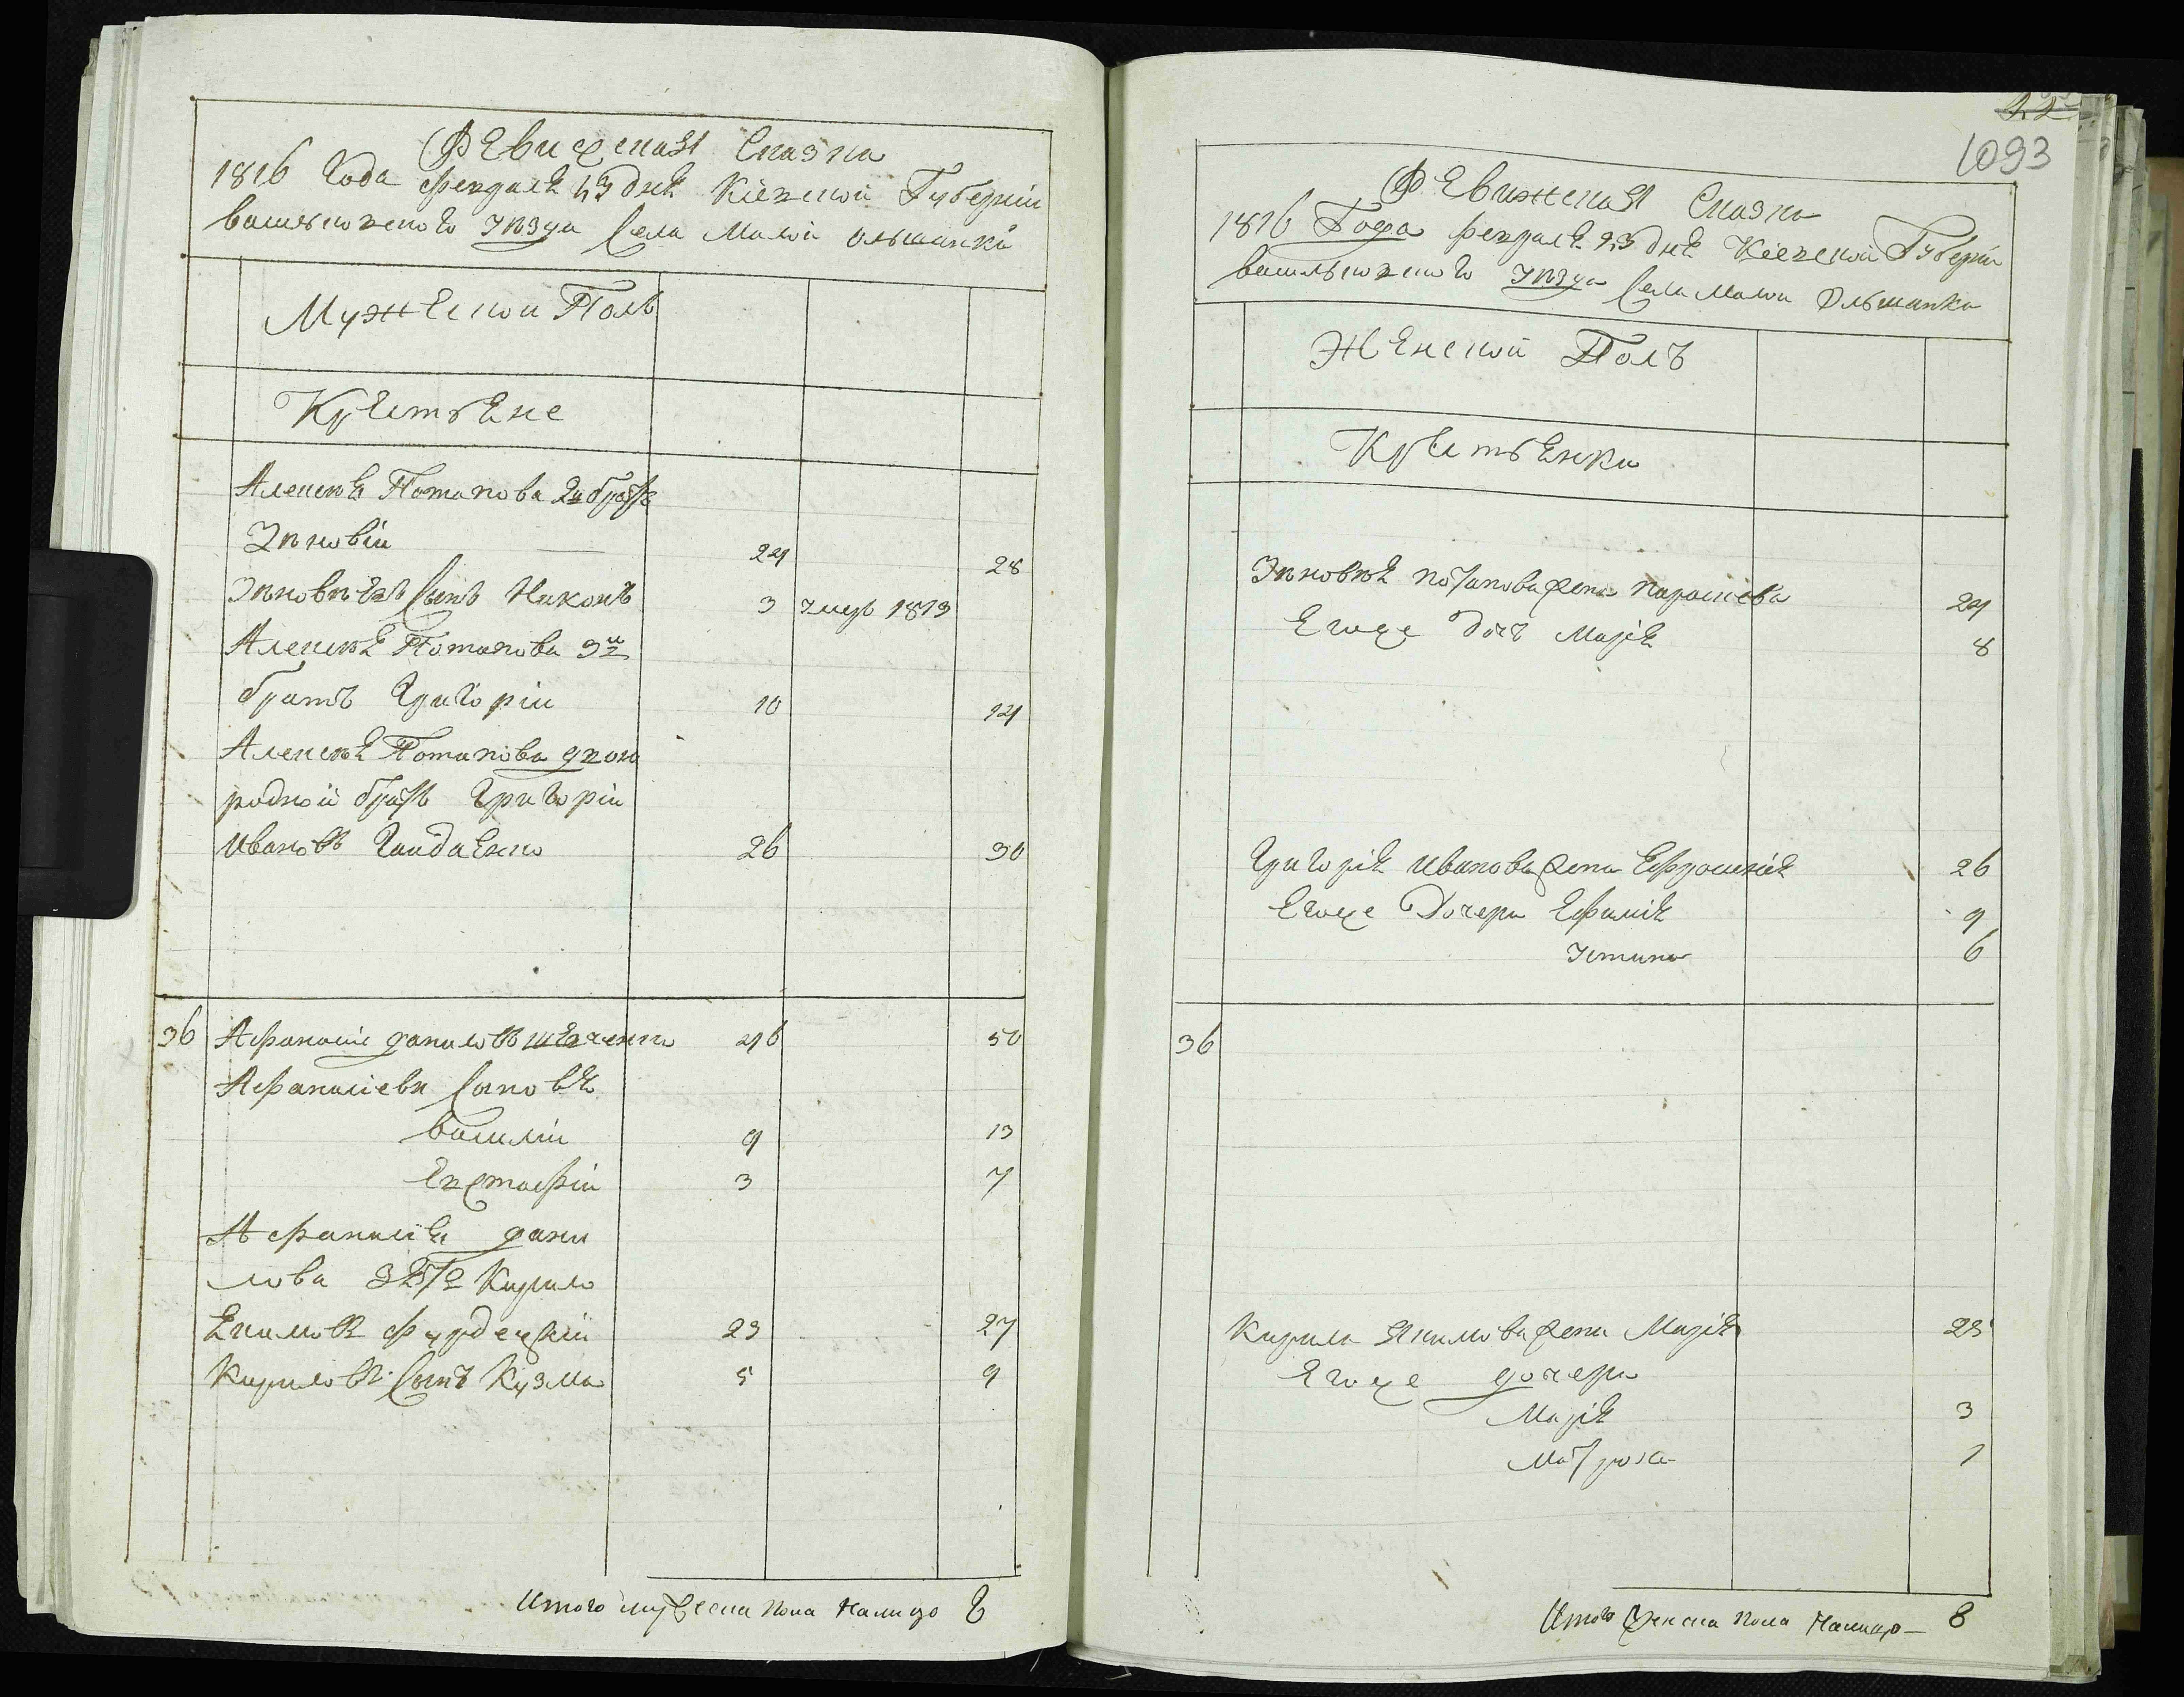 Ревижская Сказка
1816 Года февраля 23 дня Кіевской Губерніи
васильковского уезда Села Малой ольшанки
Мужеской Полъ
Крестьяне
Алексея Потапова 2й братъ
Зѣновіи 24 28
Зѣновіевъ Сынъ Никонъ 3 умеръ 1813
Алексея Потапова 3й
братъ Григоріи 10 14
Алексея Потапова двою
родной братъ Григоріи
Ивановъ Гайдаенко 26 30
36 Афанасіи даниловъ шевченко 46 50
Афанасіевы Сыновя
василіи 9 13
Евстафіи 3 7
Афанасія дани
лова зять Кирило
Екимовъ 23 27
Кириловъ Сынъ Кузма 5 9
Итого мужеска пола налицо 8
1093
Ревижская Сказка
1816 Года февраля 23 дня Кіевской Губерніи
васильковского уезда Села Малой Ольшанки
Женской Полъ
Крестьянки
Зѣновія потапова жена Параскева 24
Егоже дочъ Марія 8
Григорія иванова жена Ефросинія 26
Егоже Дочери Ефимія 9
Устина 6
36
Кирила Якимова жена Марія 25
Егоже дочери
Марія 3
Матрона 1
Итого женска пола налицо 8